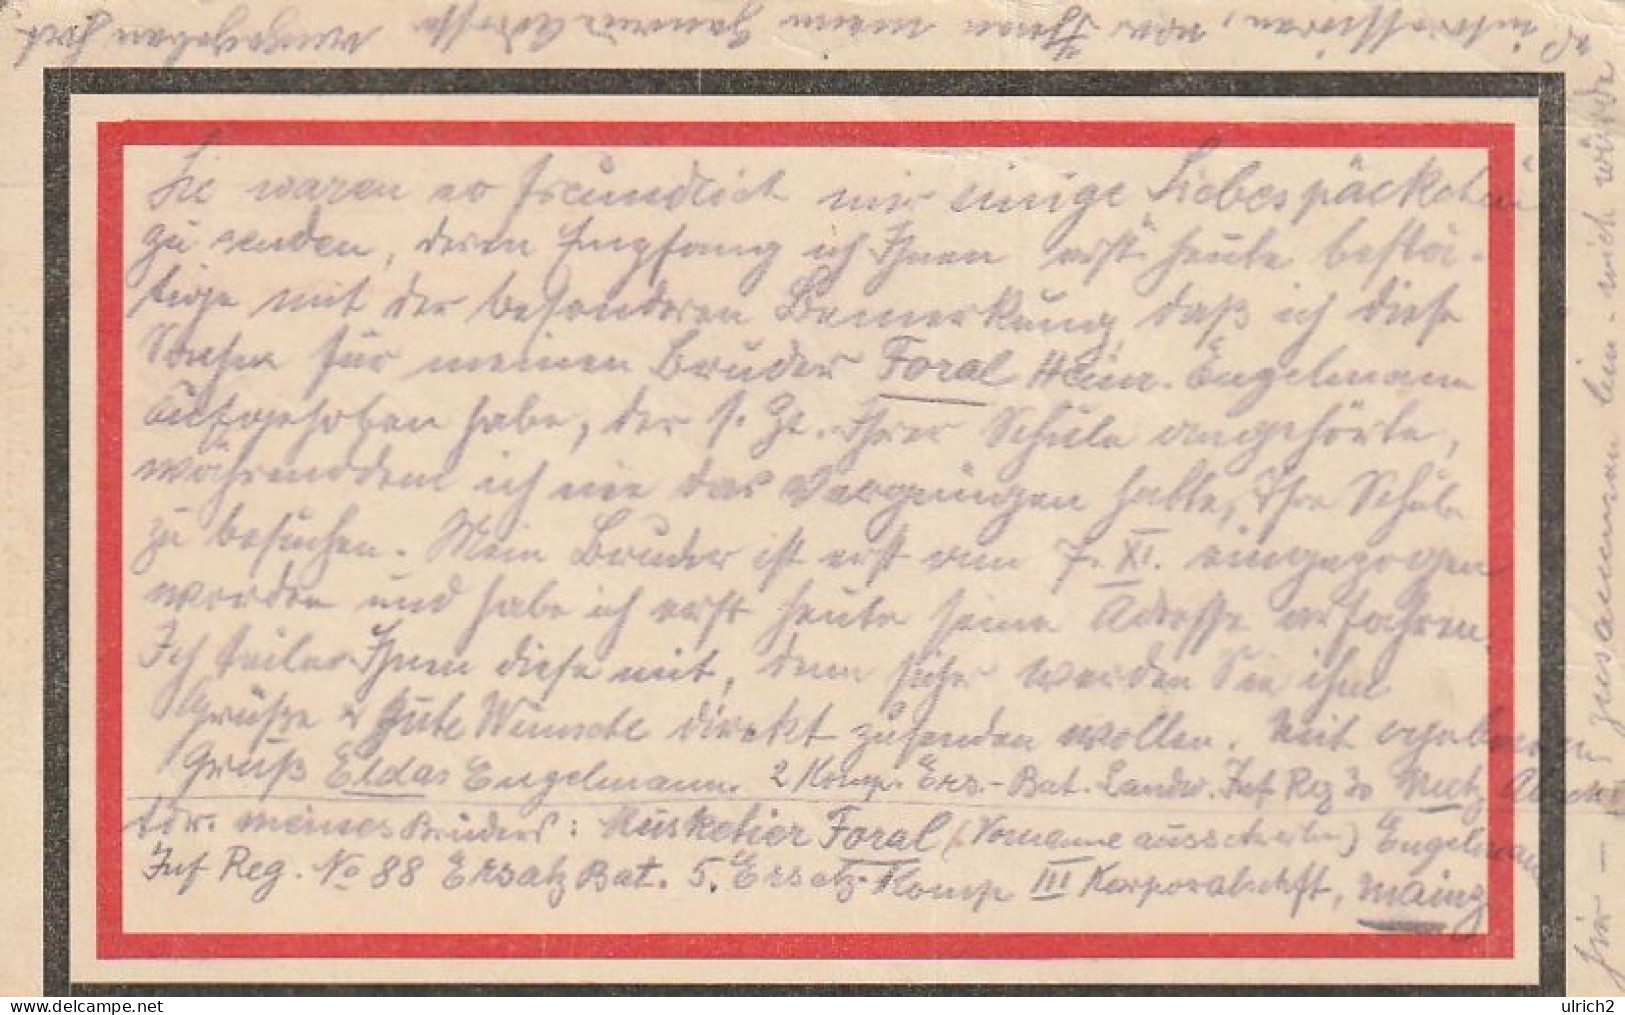 Sie waren so freundlich mir einige Liebespäckchen
zu senden, deren Empfang ich Ihnen erst heute bestä-
tige mit der besonderen Bemerkung, daß ich diese
Sachen für meinen Bruder Foral Heinr. Engelmann
aufgehoben habe, der s. Zt. Ihrer Schule angehörte,
währenddem ich nie das Vergnügen hatte, Ihre Schule
zu besuchen. Mein Bruder ist erst am 7. XI. eingezogen
worden und habe ich erst heute seine Adresse erfahren
Ich teile Ihnen diese mit, denn sicher werden Sie ihm
Grüße & gute Wünsche direkt zusenden wollen. Mit ergebenem
Gruß Eldas Engelmann. 2 Komp. Ers.-Bat. Landw. Inf Reg 30 Metz
meines Bruders: Musketier Foral (Vorname ausschreiben) Engelmann
Inf Reg. No 88 Ersatz Bat. 5. Ersatz-Komp III Korporalschft, Mainz
hier zusammen bin. mich würde
es interessieren, wer Ihnen meine Adresse angegeben hat
ulrich2